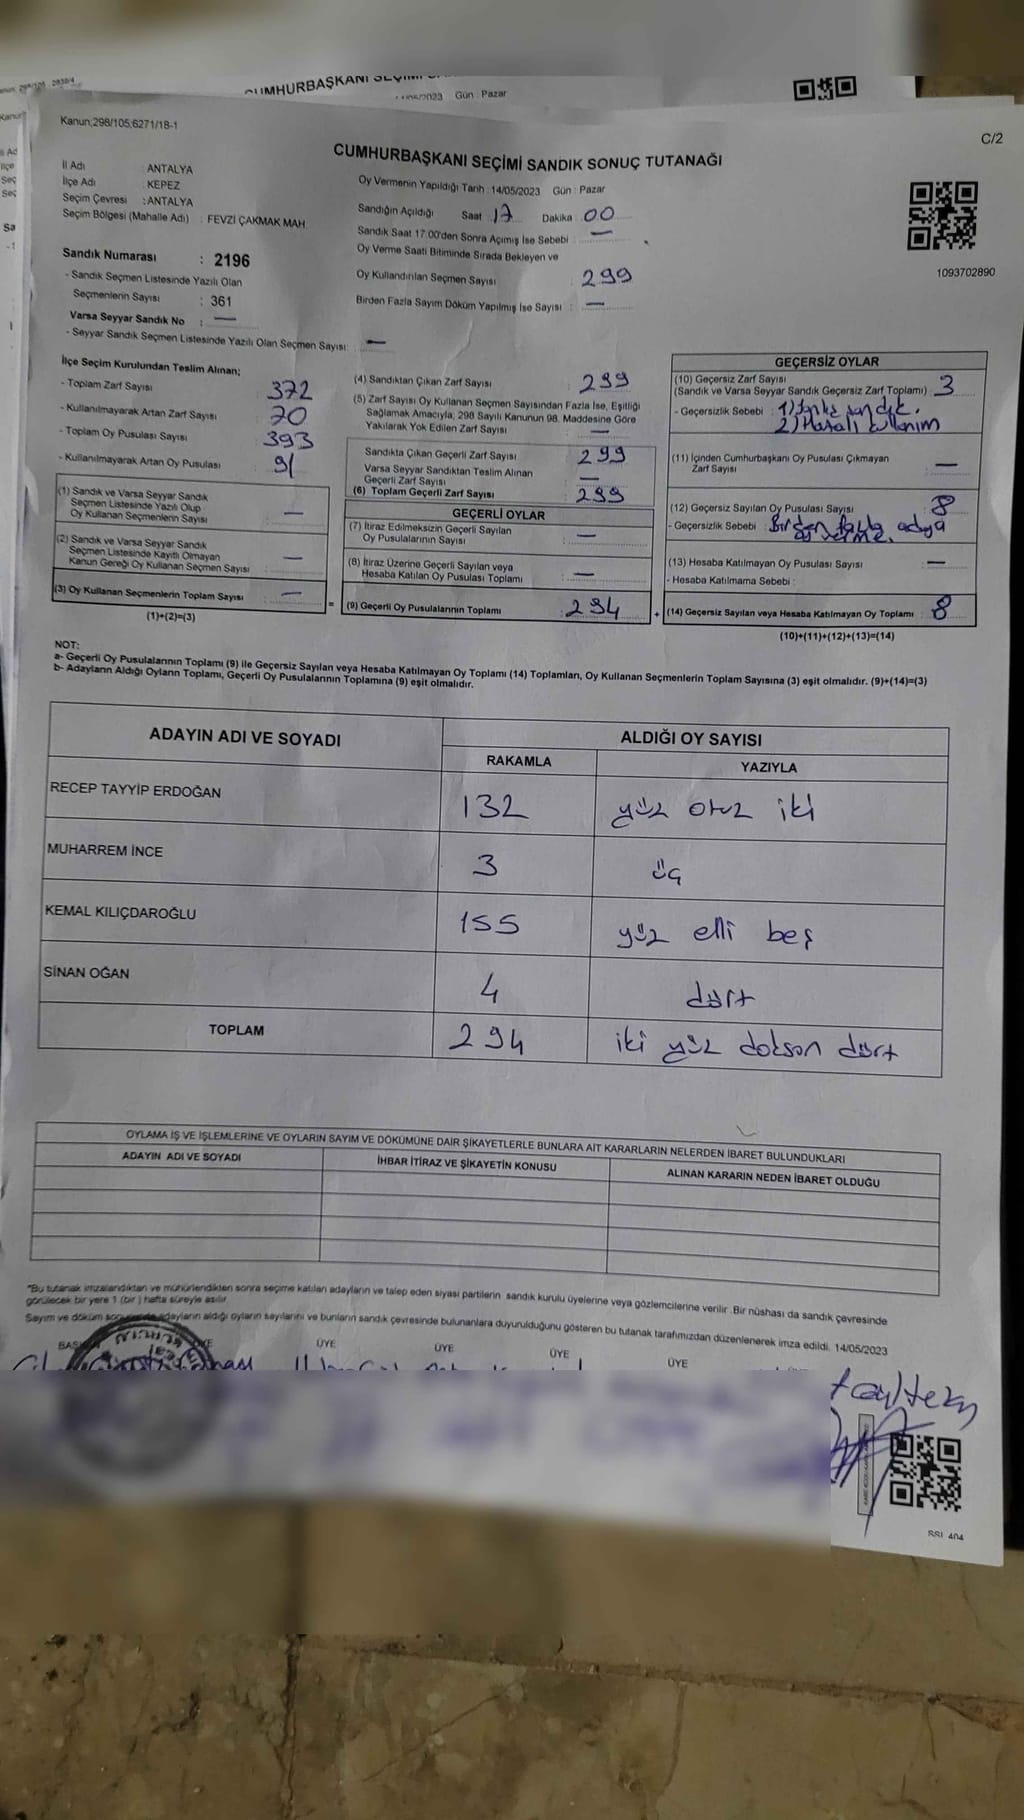 CUMHURBAŞKANI
Gün : Pazar
Kanun;298/105;6271/18-1
C/2
CUMHURBAŞKANI SEÇİMİ SANDIK SONUÇ TUTANAĞI
İl Adı : ANTALYA
İlçe Adı : KEPEZ
Seçim Çevresi : ANTALYA
Seçim Bölgesi (Mahalle Adı) : FEVZİ ÇAKMAK MAH.
Oy Vermenin Yapıldığı Tarih : 14/05/2023 Gün : Pazar
Sandığın Açıldığı Saat : 17 Dakika : 00
Sandık Saat 17:00'den Sonra Açımış İse Sebebi : —
Oy Verme Saati Bitiminde Sırada Bekleyen ve
Oy Kullandırılan Seçmen Sayısı : 299
Birden Fazla Sayım Döküm Yapılmış İse Sayısı : —
1093702890
Sandık Numarası : 2196
- Sandık Seçmen Listesinde Yazılı Olan
Seçmenlerin Sayısı : 361
Varsa Seyyar Sandık No : —
- Seyyar Sandık Seçmen Listesinde Yazılı Olan Seçmen Sayısı: —
İlçe Seçim Kurulundan Teslim Alınan;
- Toplam Zarf Sayısı 372
- Kullanılmayarak Artan Zarf Sayısı : 70
- Toplam Oy Pusulası Sayısı : 393
- Kullanılmayarak Artan Oy Pusulası : 91
(1) Sandık ve Varsa Seyyar Sandık
Seçmen Listesinde Yazılı Olup
Oy Kullanan Seçmenlerin Sayısı : —
(2) Sandık ve Varsa Seyyar Sandık
Seçmen Listesinde Kayıtlı Olmayan
Kanun Gereği Oy Kullanan Seçmen Sayısı : —
(3) Oy Kullanan Seçmenlerin Toplam Sayısı : —
(1)+(2)=(3)
(4) Sandıktan Çıkan Zarf Sayısı : 299
(5) Zarf Sayısı Oy Kullanan Seçmen Sayısından Fazla İse, Eşitliği
Sağlamak Amacıyla, 298 Sayılı Kanunun 98. Maddesine Göre
Yakılarak Yok Edilen Zarf Sayısı : —
Sandıkta Çıkan Geçerli Zarf Sayısı : 299
Varsa Seyyar Sandıktan Teslim Alınan
Geçerli Zarf Sayısı : —
(6) Toplam Geçerli Zarf Sayısı : 299
GEÇERLİ OYLAR
(7) İtiraz Edilmeksizin Geçerli Sayılan
Oy Pusulalarının Sayısı : —
(8) İtiraz Üzerine Geçerli Sayılan veya
Hesaba Katılan Oy Pusulası Toplamı : —
= (9) Geçerli Oy Pusulalarının Toplamı : 294
GEÇERSİZ OYLAR
(10) Geçersiz Zarf Sayısı
(Sandık ve Varsa Seyyar Sandık Geçersiz Zarf Toplamı) : 3
- Geçersizlik Sebebi : 1) farklı sandık.
2) Hatalı kullanım
(11) İçinden Cumhurbaşkanı Oy Pusulası Çıkmayan
Zarf Sayısı : —
(12) Geçersiz Sayılan Oy Pusulası Sayısı : 8
- Geçersizlik Sebebi : Birden fazla adaya
oy verme.
(13) Hesaba Katılmayan Oy Pusulası Sayısı : —
- Hesaba Katılmama Sebebi :
+ (14) Geçersiz Sayılan veya Hesaba Katılmayan Oy Toplamı : 8
(10)+(11)+(12)+(13)=(14)
NOT:
a- Geçerli Oy Pusulalarının Toplamı (9) ile Geçersiz Sayılan veya Hesaba Katılmayan Oy Toplamı (14) Toplamları, Oy Kullanan Seçmenlerin Toplam Sayısına (3) eşit olmalıdır. (9)+(14)=(3)
b- Adayların Aldığı Oyların Toplamı, Geçerli Oy Pusulalarının Toplamına (9) eşit olmalıdır.
ADAYIN ADI VE SOYADI
ALDIĞI OY SAYISI
RAKAMLA YAZIYLA
RECEP TAYYİP ERDOĞAN 132 yüz otuz iki
MUHARREM İNCE 3 üç
KEMAL KILIÇDAROĞLU 155 yüz elli beş
SİNAN OĞAN 4 dört
TOPLAM 294 iki yüz doksan dört
OYLAMA İŞ VE İŞLEMLERİNE VE OYLARIN SAYIM VE DÖKÜMÜNE DAİR ŞİKAYETLERLE BUNLARA AİT KARARLARIN NELERDEN İBARET BULUNDUKLARI
ADAYIN ADI VE SOYADI İHBAR İTİRAZ VE ŞİKAYETİN KONUSU ALINAN KARARIN NEDEN İBARET OLDUĞU
*Bu tutanak imzalandıktan ve mühürlendikten sonra seçime katılan adayların ve talep eden siyasi partilerin sandık kurulu üyelerine veya gözlemcilerine verilir .Bir nüshası da sandık çevresinde
görülecek bir yere 1 (bir ) hafta süreyle asılır.
Sayım ve döküm adayların aldığı oyların sayılarını ve bunların sandık çevresinde bulunanlara duyurulduğunu gösteren bu tutanak tarafımızdan düzenlenerek imza edildi. 14/05/2023
ÜYE ÜYE ÜYE ÜYE